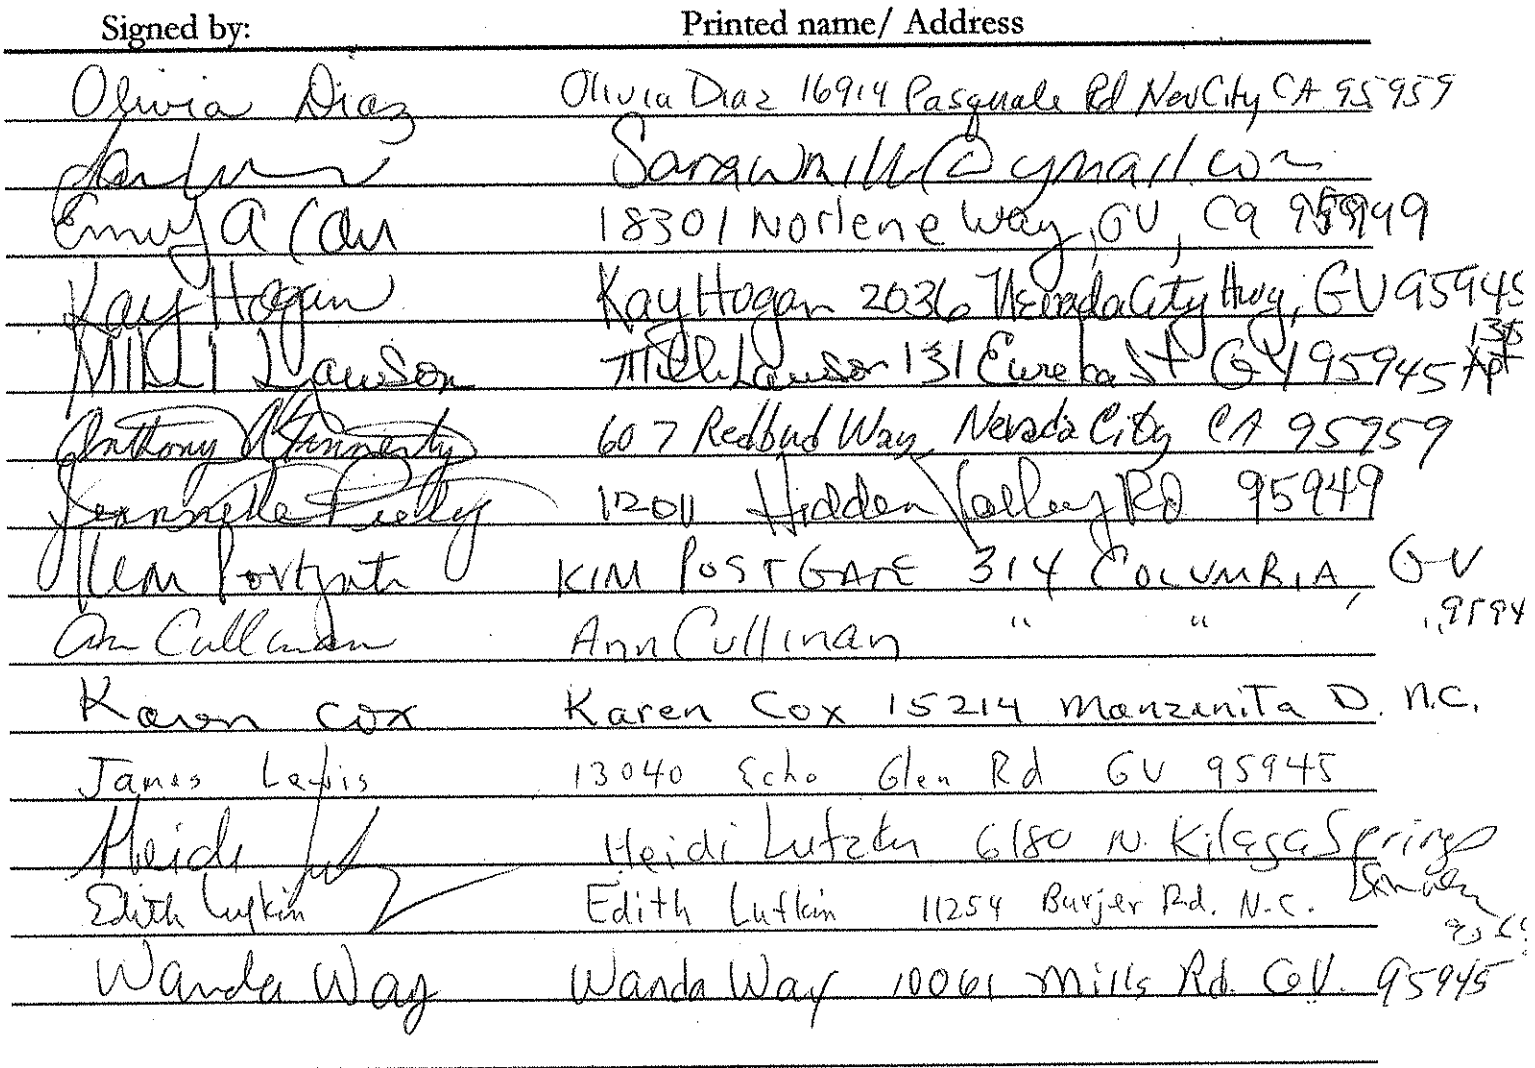 Signed by: Printed name/ Address
Olivia Diaz Olivia Diaz 16914 Pasquale Rd Nev City CA 95959
@ymail.com
Emily A Carr 18301 Norlene Way, GV, Ca 95949
Kay Hogan Kay Hogan 2036 Nevada City Hwy, GV 95945
Mikki Lawson Lawson 131 Eureka St GV 95945 Apt
Anthony 607 Redbud Way Nevada City CA 95959
Jeannette 12011 Hidden Valley Rd 95949
Kim Postgate KIM POSTGATE 314 COLUMBIA, GV
Ann Cullinan Ann Cullinan " " " 9594
Karen Cox Karen Cox 15214 Manzanita D. N.C.
James Lewis 13040 Echo Glen Rd GV 95945
Heidi Heidi 6180 N. Kilaga Springs
Edith Lufkin Edith Lufkin 11254 Burjer Rd. N.C.
Wanda Way Wanda Way 10061 Mills Rd. G.V. 95945